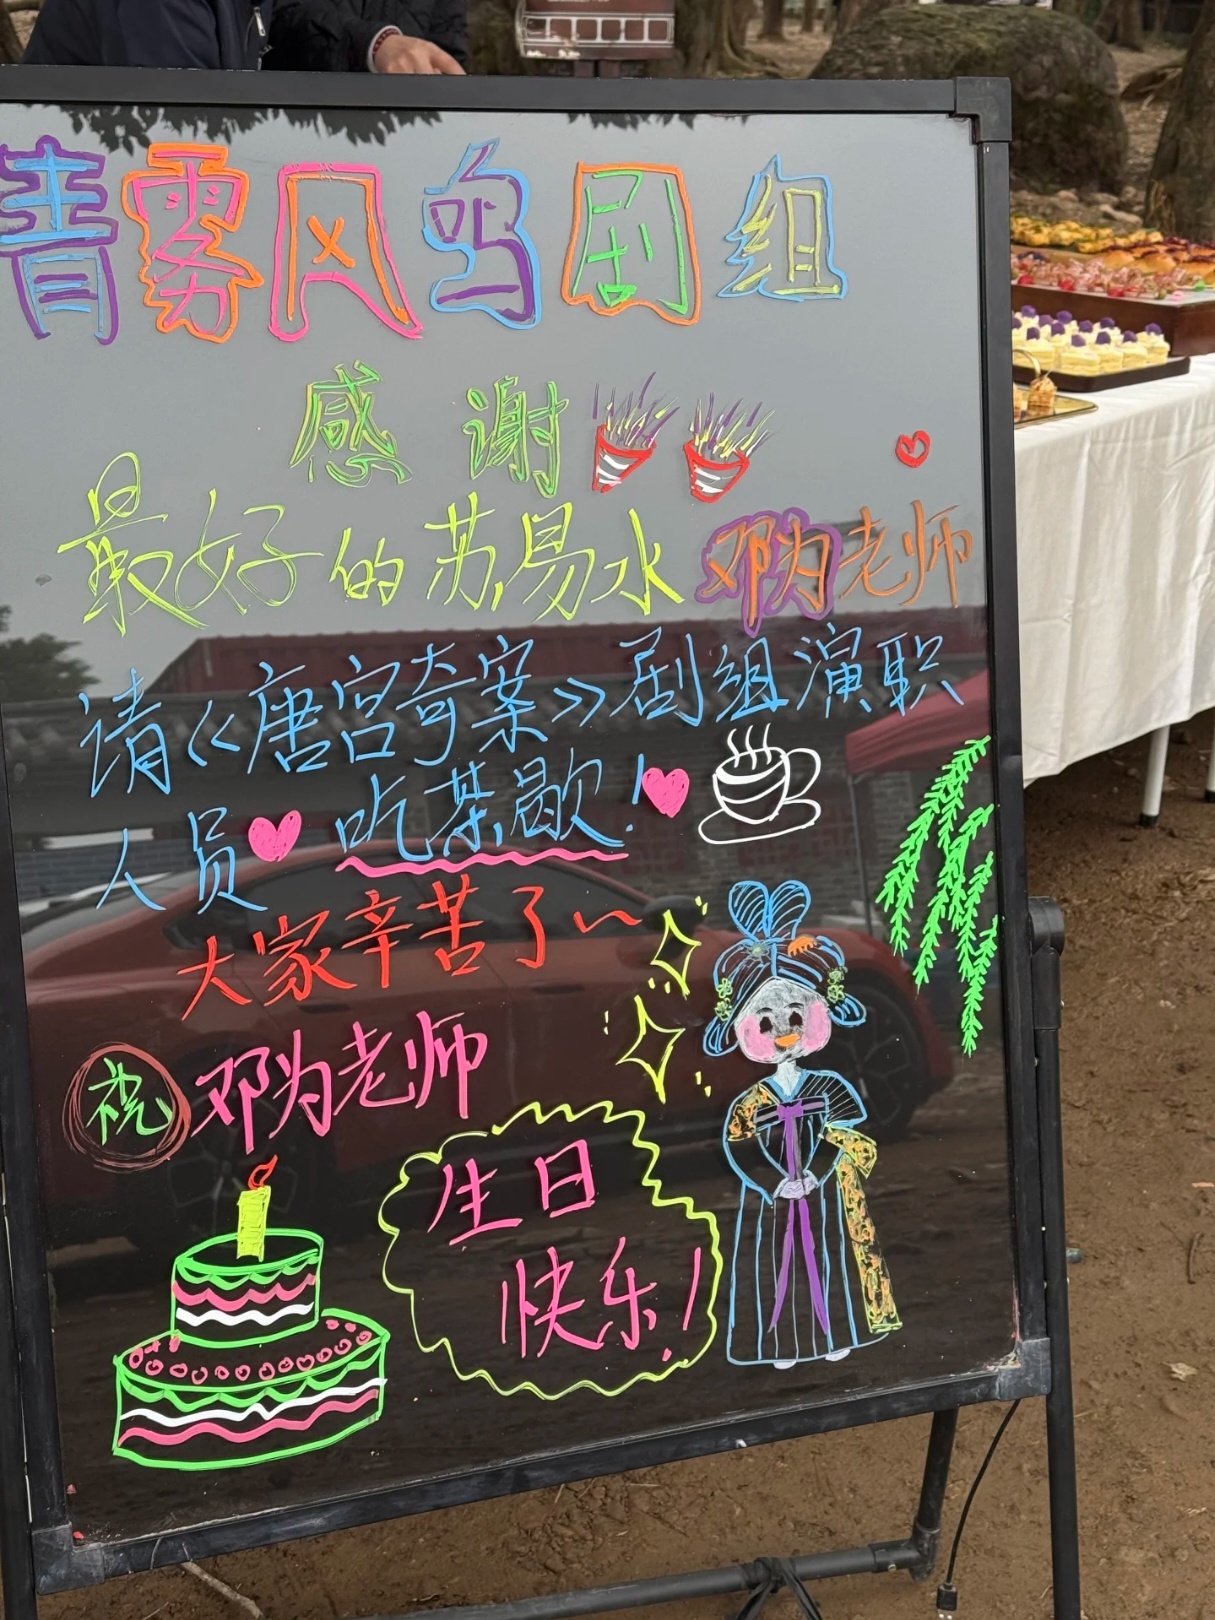 青雾风鸣剧组
感谢
最好的苏易水邓为老师
请《唐宫奇案》剧组演职
人员吃茶歇!
大家辛苦了~
祝邓为老师
生日
快乐!